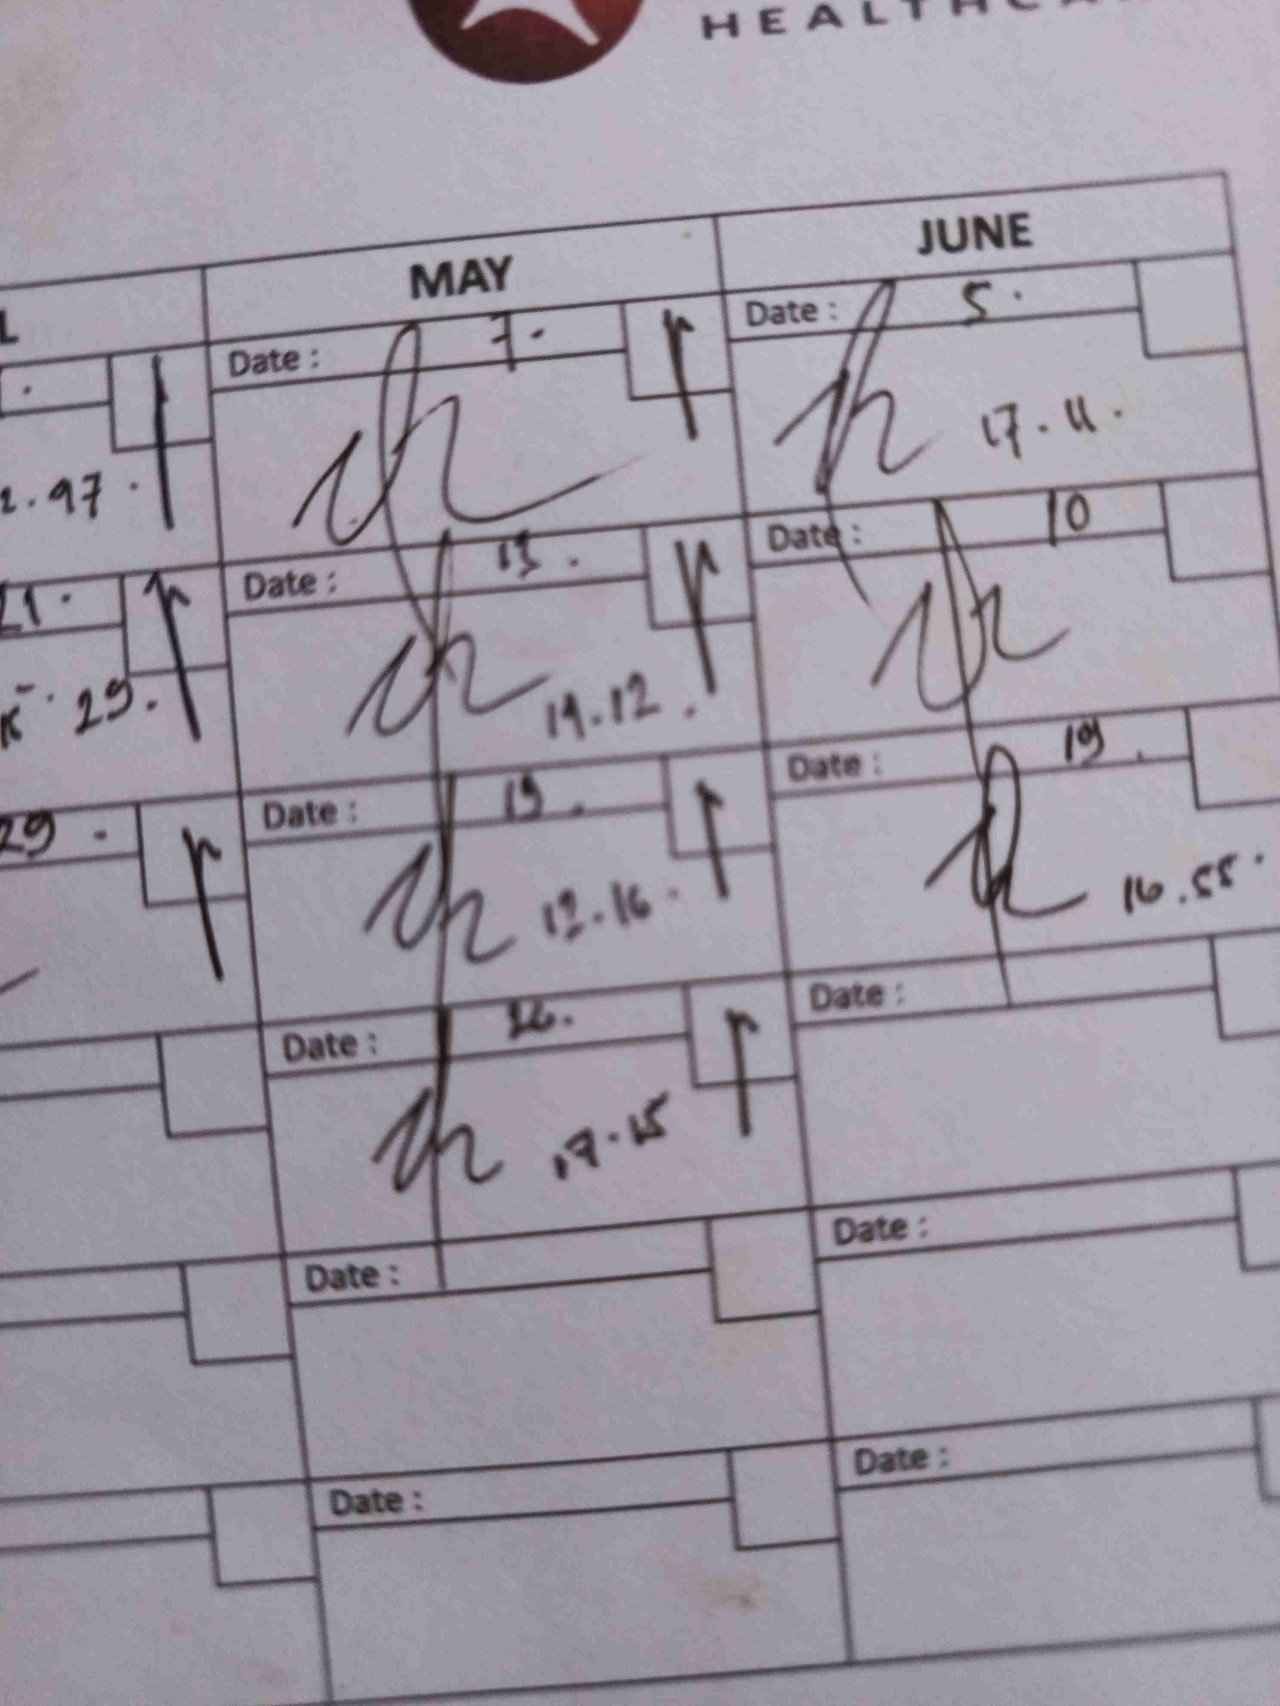 HEALTHCA
MAY
JUNE
L
Date : 7.
Date : 5.
2.97.
17.11.
21.
Date : 13.
Date : 10
29.
19.12.
29.
Date : 19.
Date : 19.
12.16.
16.55.
Date : 26.
Date :
17.15
Date :
Date :
Date :
Date :